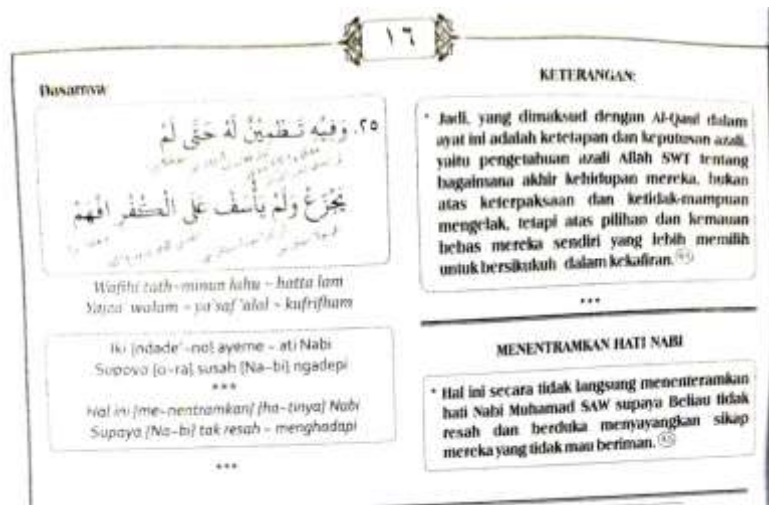 ١٦
Dasarnya
٢٥. وَفِيْهِ تَـطْمِيْنٌ لَهُ حَتَّى لَمْ
يَجْزَعْ وَلَمْ يَأْسَفْ عَلَى الْكُفْرِ افْهَمْ
Wafihi tath-minun lahu - hatta lam
Yajza' walam - ya'saf 'alal - kufrifham
Iki [ndade'-no] ayeme - ati Nabi
Supoyo [o-ra] susah [Na-bi] ngadepi
***
Hal ini [me-nentramkan] [ha-tinya] Nabi
Supaya [Na-bi] tak resah - menghadapi
***
KETERANGAN:
* Jadi, yang dimaksud dengan Al-Qaul dalam
ayat ini adalah ketetapan dan keputusan azali,
yaitu pengetahuan azali Allah SWT tentang
bagaimana akhir kehidupan mereka, bukan
atas keterpaksaan dan ketidak-mampuan
mengelak, tetapi atas pilihan dan kemauan
bebas mereka sendiri yang lebih memilih
untuk bersikukuh dalam kekafiran.
***
MENENTRAMKAN HATI NABI
* Hal ini secara tidak langsung menenteramkan
hati Nabi Muhamad SAW supaya Beliau tidak
resah dan berduka menyayangkan sikap
mereka yang tidak mau beriman.